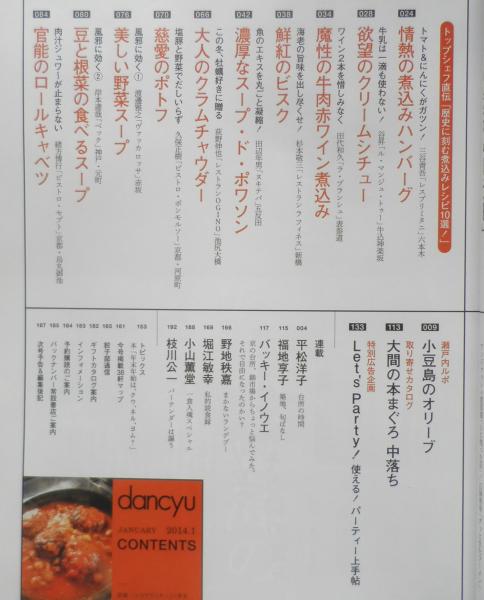 トップシェフ直伝「歴史に刻む煮込みレシピ10選!」
024
トマト&にんにくがガツン!
情熱の煮込みハンバーグ
三谷青吾「レスプリミタニ」六本木
028
牛乳は一滴も使わない!
欲望のクリームシチュー
谷昇「ル・マンジュ・トゥー」牛込神楽坂
034
ワイン2本を惜しみなく
魔性の牛肉赤ワイン煮込み
田代和久「ラ・ブランシュ」表参道
038
海老の旨味を出し尽くせ!
鮮紅のビスク
杉本敬三「レストラン ラ フィネス」新橋
042
魚のエキスを丸ごと凝縮!
濃厚なスープ・ド・ポワソン
田辺年男「ヌキテパ」五反田
066
この冬、牡蠣好きに贈る
大人のクラムチャウダー
荻野伸也「レストランOGINO」池尻大橋
070
塩豚と野菜でだしいらず
慈愛のポトフ
久保正樹「ビストロ・ボンモルソー」京都・河原町
076
風邪に効く①
美しい野菜スープ
渡邊雅之「ヴァッカ ロッサ」赤坂
080
風邪に効く②
豆と根菜の食べるスープ
岸本達哉「ベック」神戸・元町
084
肉汁ジュワーが止まらない
官能のロールキャベツ
緒方博行「ビストロ・セプト」京都・烏丸御池
瀬戸内ルポ
009
小豆島のオリーブ
取り寄せカタログ
113
大間の本まぐろ 中落ち
特別広告企画
133
Let's Party! 使える!パーティー上手帖
連載
004
平松洋子
台所の時間
115
福地享子
築地、旬ばなし
117
バッキー・イノウエ
京の台所、錦市場からちょっと悩んでみた。
それで自由になったのかい?
166
野地秩嘉
まかないランデブー
168
堀江敏幸
私的読食録
188
小山薫堂
一食入魂スペシャル
192
枝川公一
バーテンダーは謳う
153
トピックス
本「年末年始は、クウ、ネル、ヨム?」
161
今号掲載38軒マップ
165
餃子部通信
182
ギフトカタログご案内
183
インフォメーション
184
予約購読のご案内
185
バックナンバー常設書店ご案内
187
次号予告&編集後記
dancyu
JANUARY 2014.1
CONTENTS